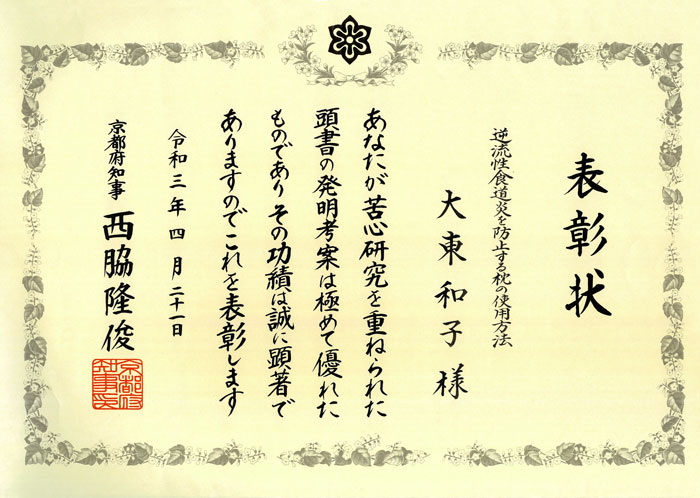 表彰状
逆流性食道炎を防止する枕の使用方法
大東和子様
あなたが苦心研究を重ねられた
頭書の発明考案は極めて優れた
ものでありその功績は誠に顕著で
ありますのでこれを表彰します
令和三年四月二十一日
京都府知事
西脇隆俊
京都府
知事印